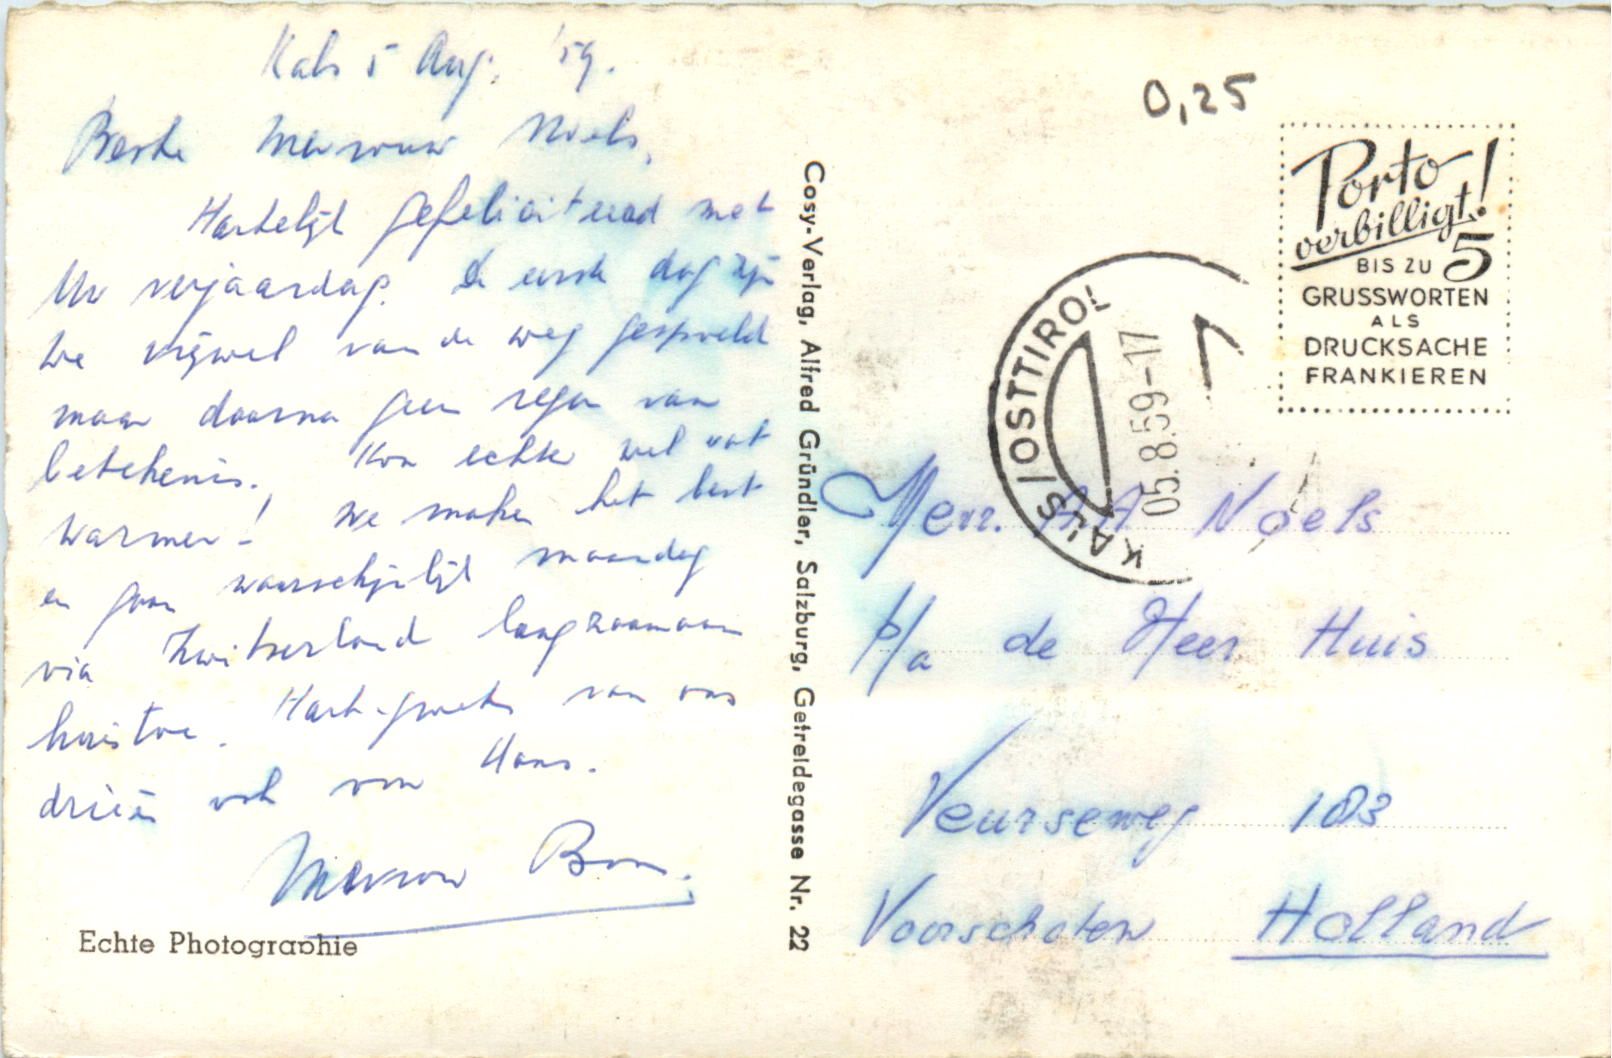 Kals 5 Aug. '59.
Beste Mevrouw Noels,
Hartelijk gefeliciteerd met
Uw verjaardag. De eerste dag zijn
we vrijwel van de weg gespoeld
maar daarna geen regen van
betekenis. Kon echter wel wat
warmer! We maken het best
en gaan waarschijnlijk maandag
via Zwitserland langzaamaan
huistoe. Hart. groeten van ons
drieën ook van Hans.
Mevrouw
Echte Photographie
Cosy-Verlag, Alfred Gründler, Salzburg, Getreidegasse Nr. 22
0,25
Porto
verbilligt!
BIS ZU 5
GRUSSWORTEN
ALS
DRUCKSACHE
FRANKIEREN
KALS / OSTTIROL
05.8.59-17
Mevr. A.A. Noels
p/a de Heer Huis
Veurseweg 183
Voorschoten Holland